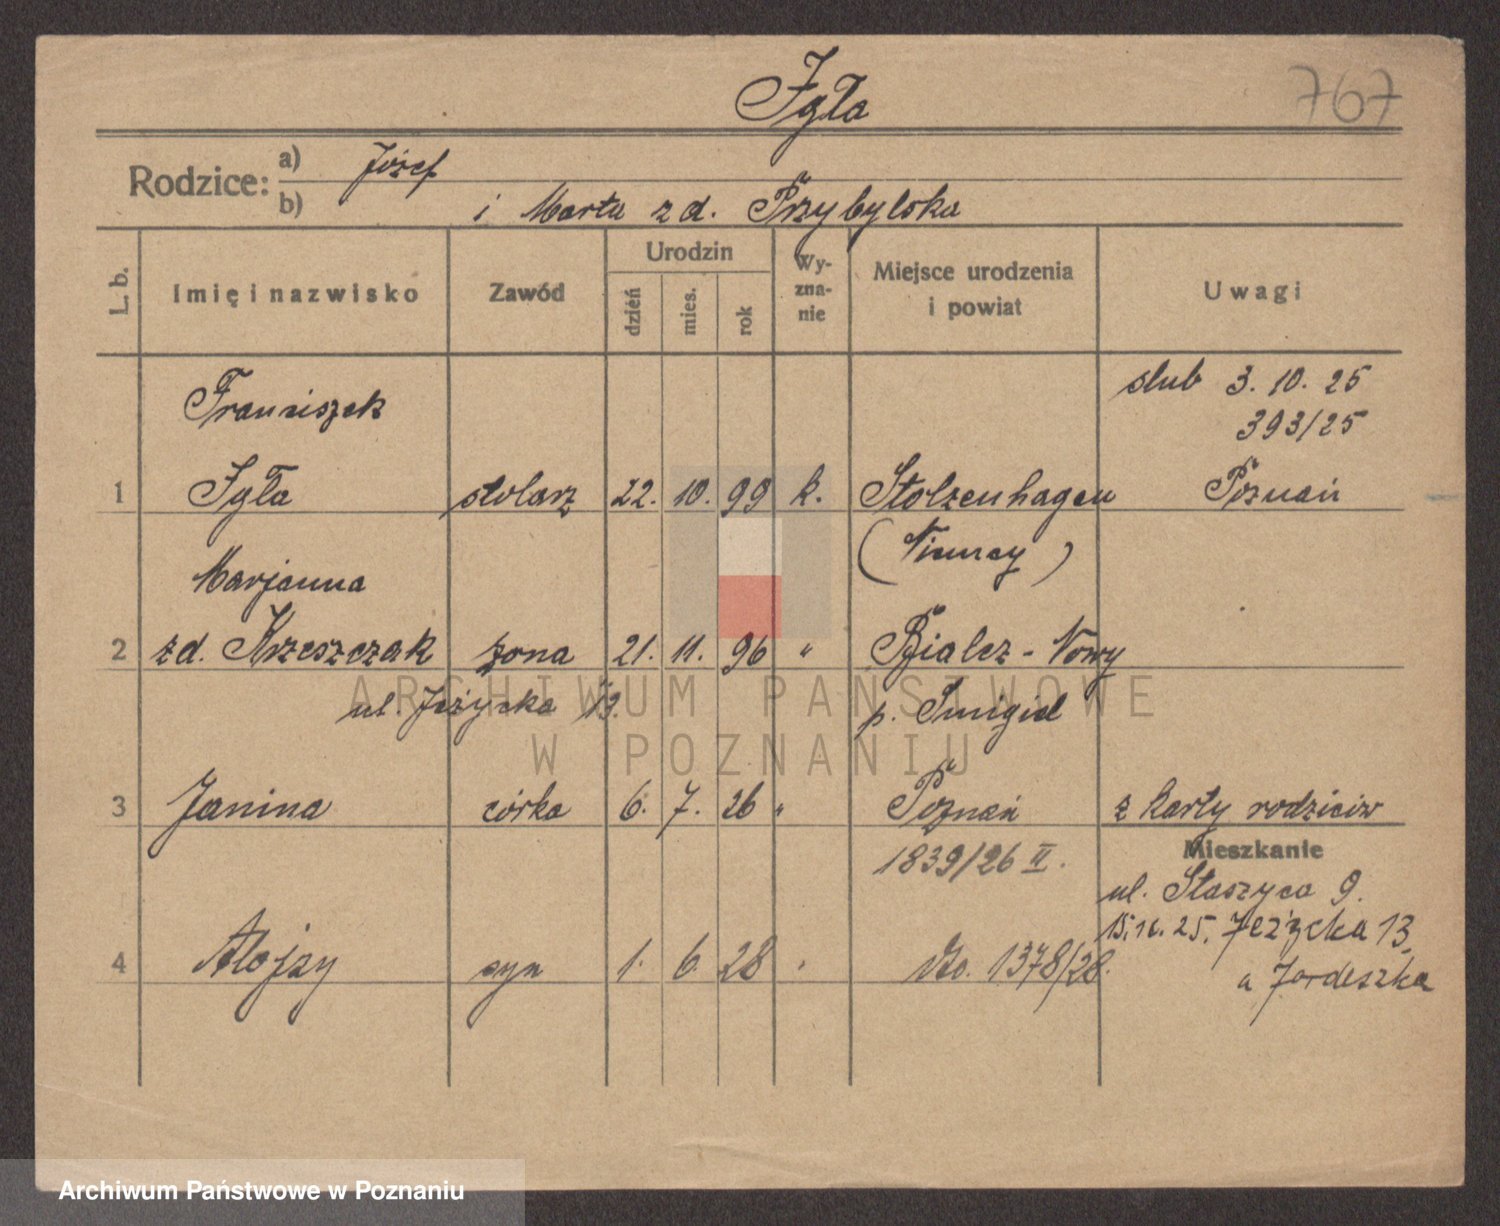 Igła
767
Rodzice: a) Józef
b) i Marta zd. Przybylska
L. b.
Imię i nazwisko
Zawód
Urodzin
dzień
mies.
rok
Wy-
zna-
nie
Miejsce urodzenia
i powiat
Uwagi
Franciszek
ślub 3. 10. 25
393/25
1 Igła stolarz 22. 10. 99 k. Stolzenhagen Poznań
(Niemcy)
Marjanna
2 zd. Krzeszczak żona 21. 11. 96 " Bialcz-Nowy
ul. Jeżycka 13. p. Śmigiel
3 Janina córka 6. 7. 26 " Poznań z karty rodziców
1839/26 II.
Mieszkanie
ul. Staszyca 9.
25, Jeżycka 13,
4 Alojzy syn 1. 6. 28 " 1378/28.
a Jordeszka
ARCHIWUM PAŃSTWOWE
W POZNANIU
Archiwum Państwowe w Poznaniu